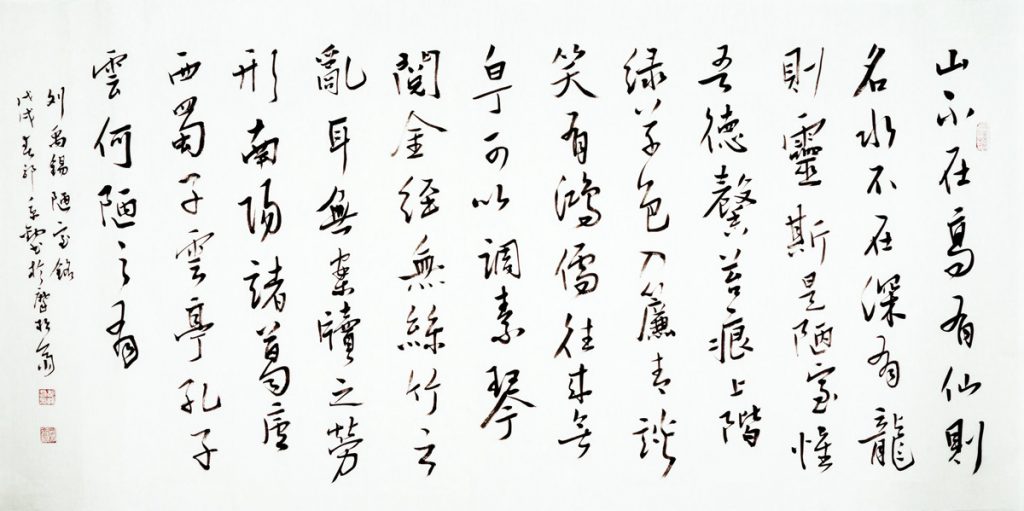 山不在高有仙則
名水不在深有龍
則靈斯是陋室惟
吾德馨苔痕上階
緑草色入簾青談
笑有鴻儒往来無
白丁可以調素琴
閲金經無絲竹之
亂耳無案牘之勞
形南陽諸葛廬
西蜀子雲亭孔子
雲何陋之有
刘禹錫陋室銘
戊戌春節 書於